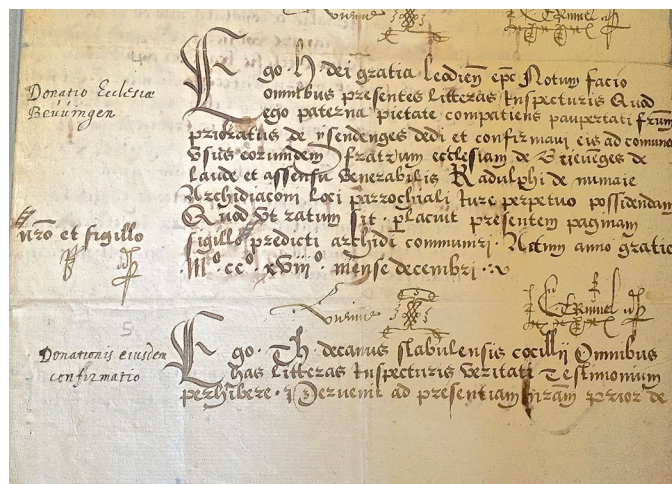 Donatio Ecclesiæ
Beüüingen
Ego · H · dei gratia Leodien epc Notum facio
omnibus presentes Litteras Inspecturis Quod
ego paterna pietate compatiens paupertati fratrum
prioratus de ysendenges dedi et confirmavi eis ad comunes
Vsus eorumdem fratrum ecclesiam de
Laude et assensu Venerabilis Radulphi de
Archidiaconi Loci parrochiali Iure perpetuo possidendam
Quod Vt ratum sit · placuit presentem paginam
sigillo predicti archidi communiri · Actum anno gratie
· Mº · ccº · xviijº · mense decembri ·
nro et sigillo
5
Donationis eiusdem
confirmatio
Ego · Th · decanus stabulensis Omnibus
has Litteras Inspecturis Veritati Testimonium
perhibere · Pervenit ad presentiam nram prior de